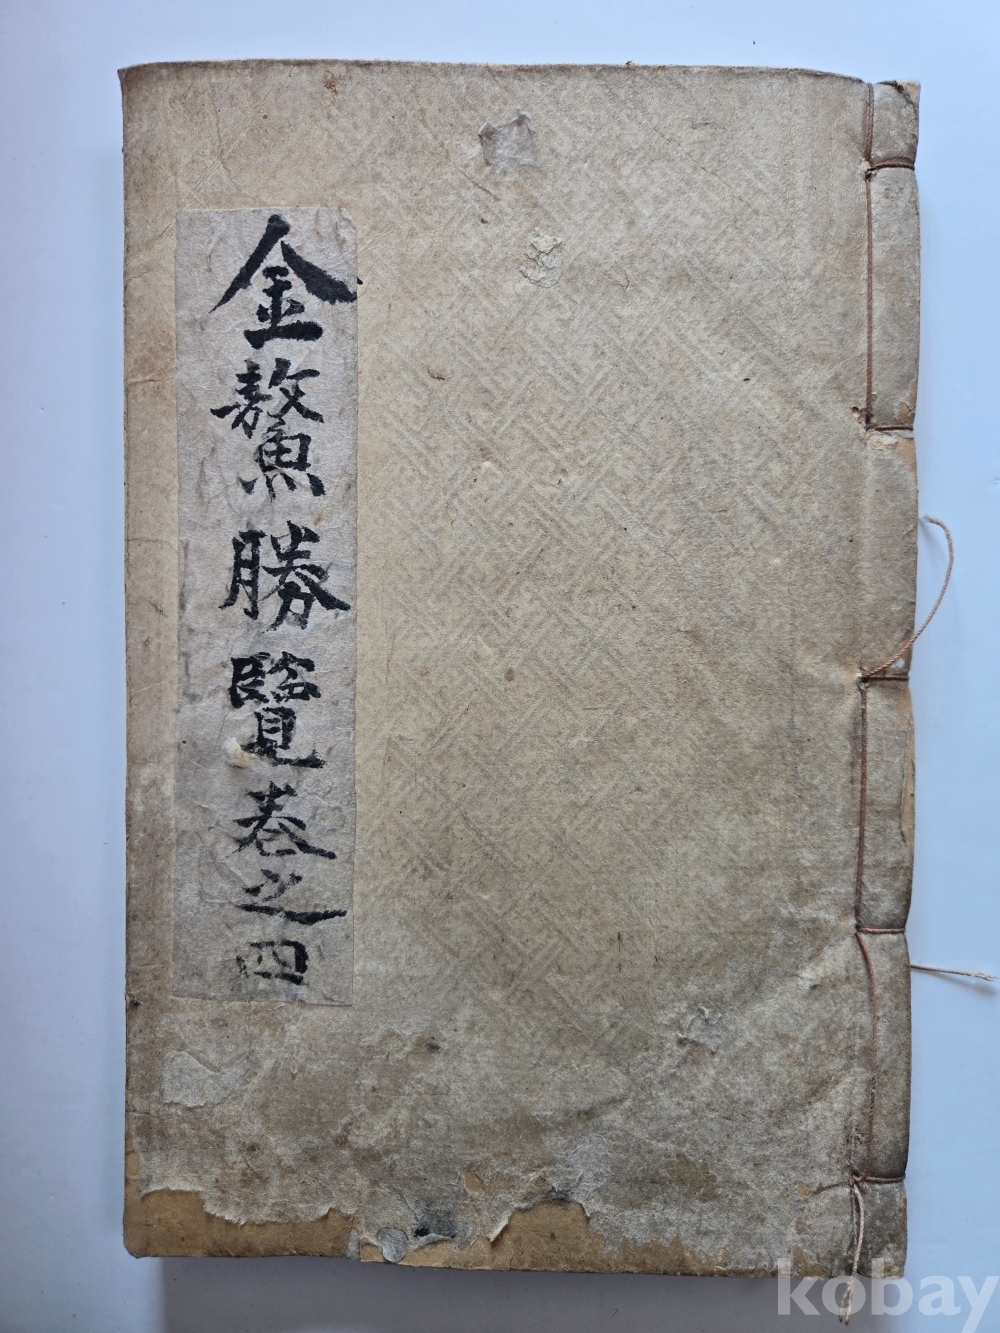 金鰲勝覽卷之四
kobay